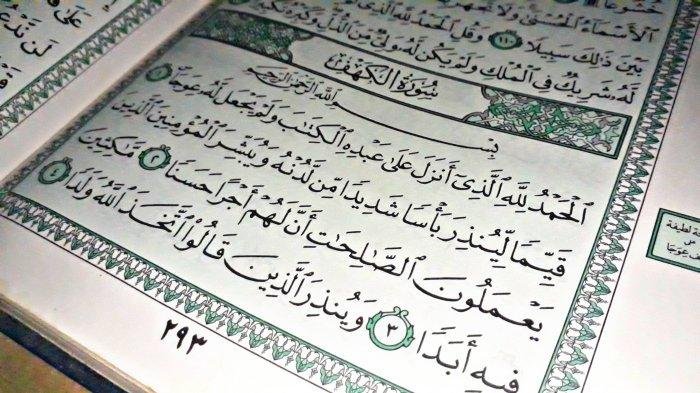 ٱلْأَسْمَآءُ ٱلْحُسْنَىٰ وَلَا تَجْهَرْ
بَيْنَ ذَٰلِكَ سَبِيلًا ١١٠ وَقُلِ ٱلْحَمْدُ لِلَّهِ ٱلَّذِى
لَّهُۥ شَرِيكٌ فِى ٱلْمُلْكِ وَلَمْ يَكُن لَّهُۥ وَلِىٌّ مِّنَ ٱلذُّلِّ وَكَبِّرْهُ تَكْبِيرًا
سُورَةُ الْكَهْفِ
بِسْمِ ٱللَّهِ ٱلرَّحْمَٰنِ ٱلرَّحِيمِ
ٱلْحَمْدُ لِلَّهِ ٱلَّذِىٓ أَنزَلَ عَلَىٰ عَبْدِهِ ٱلْكِتَٰبَ وَلَمْ يَجْعَل لَّهُۥ عِوَجَا ١
قَيِّمًا لِّيُنذِرَ بَأْسًا شَدِيدًا مِّن لَّدُنْهُ وَيُبَشِّرَ ٱلْمُؤْمِنِينَ ٱلَّذِينَ
يَعْمَلُونَ ٱلصَّٰلِحَٰتِ أَنَّ لَهُمْ أَجْرًا حَسَنًا ٢ مَّٰكِثِينَ
فِيهِ أَبَدًا ٣ وَيُنذِرَ ٱلَّذِينَ قَالُوا۟ ٱتَّخَذَ ٱللَّهُ وَلَدًا ٤
٢٩٣
لطيفة
عوجا
لَن نَّدْعُ